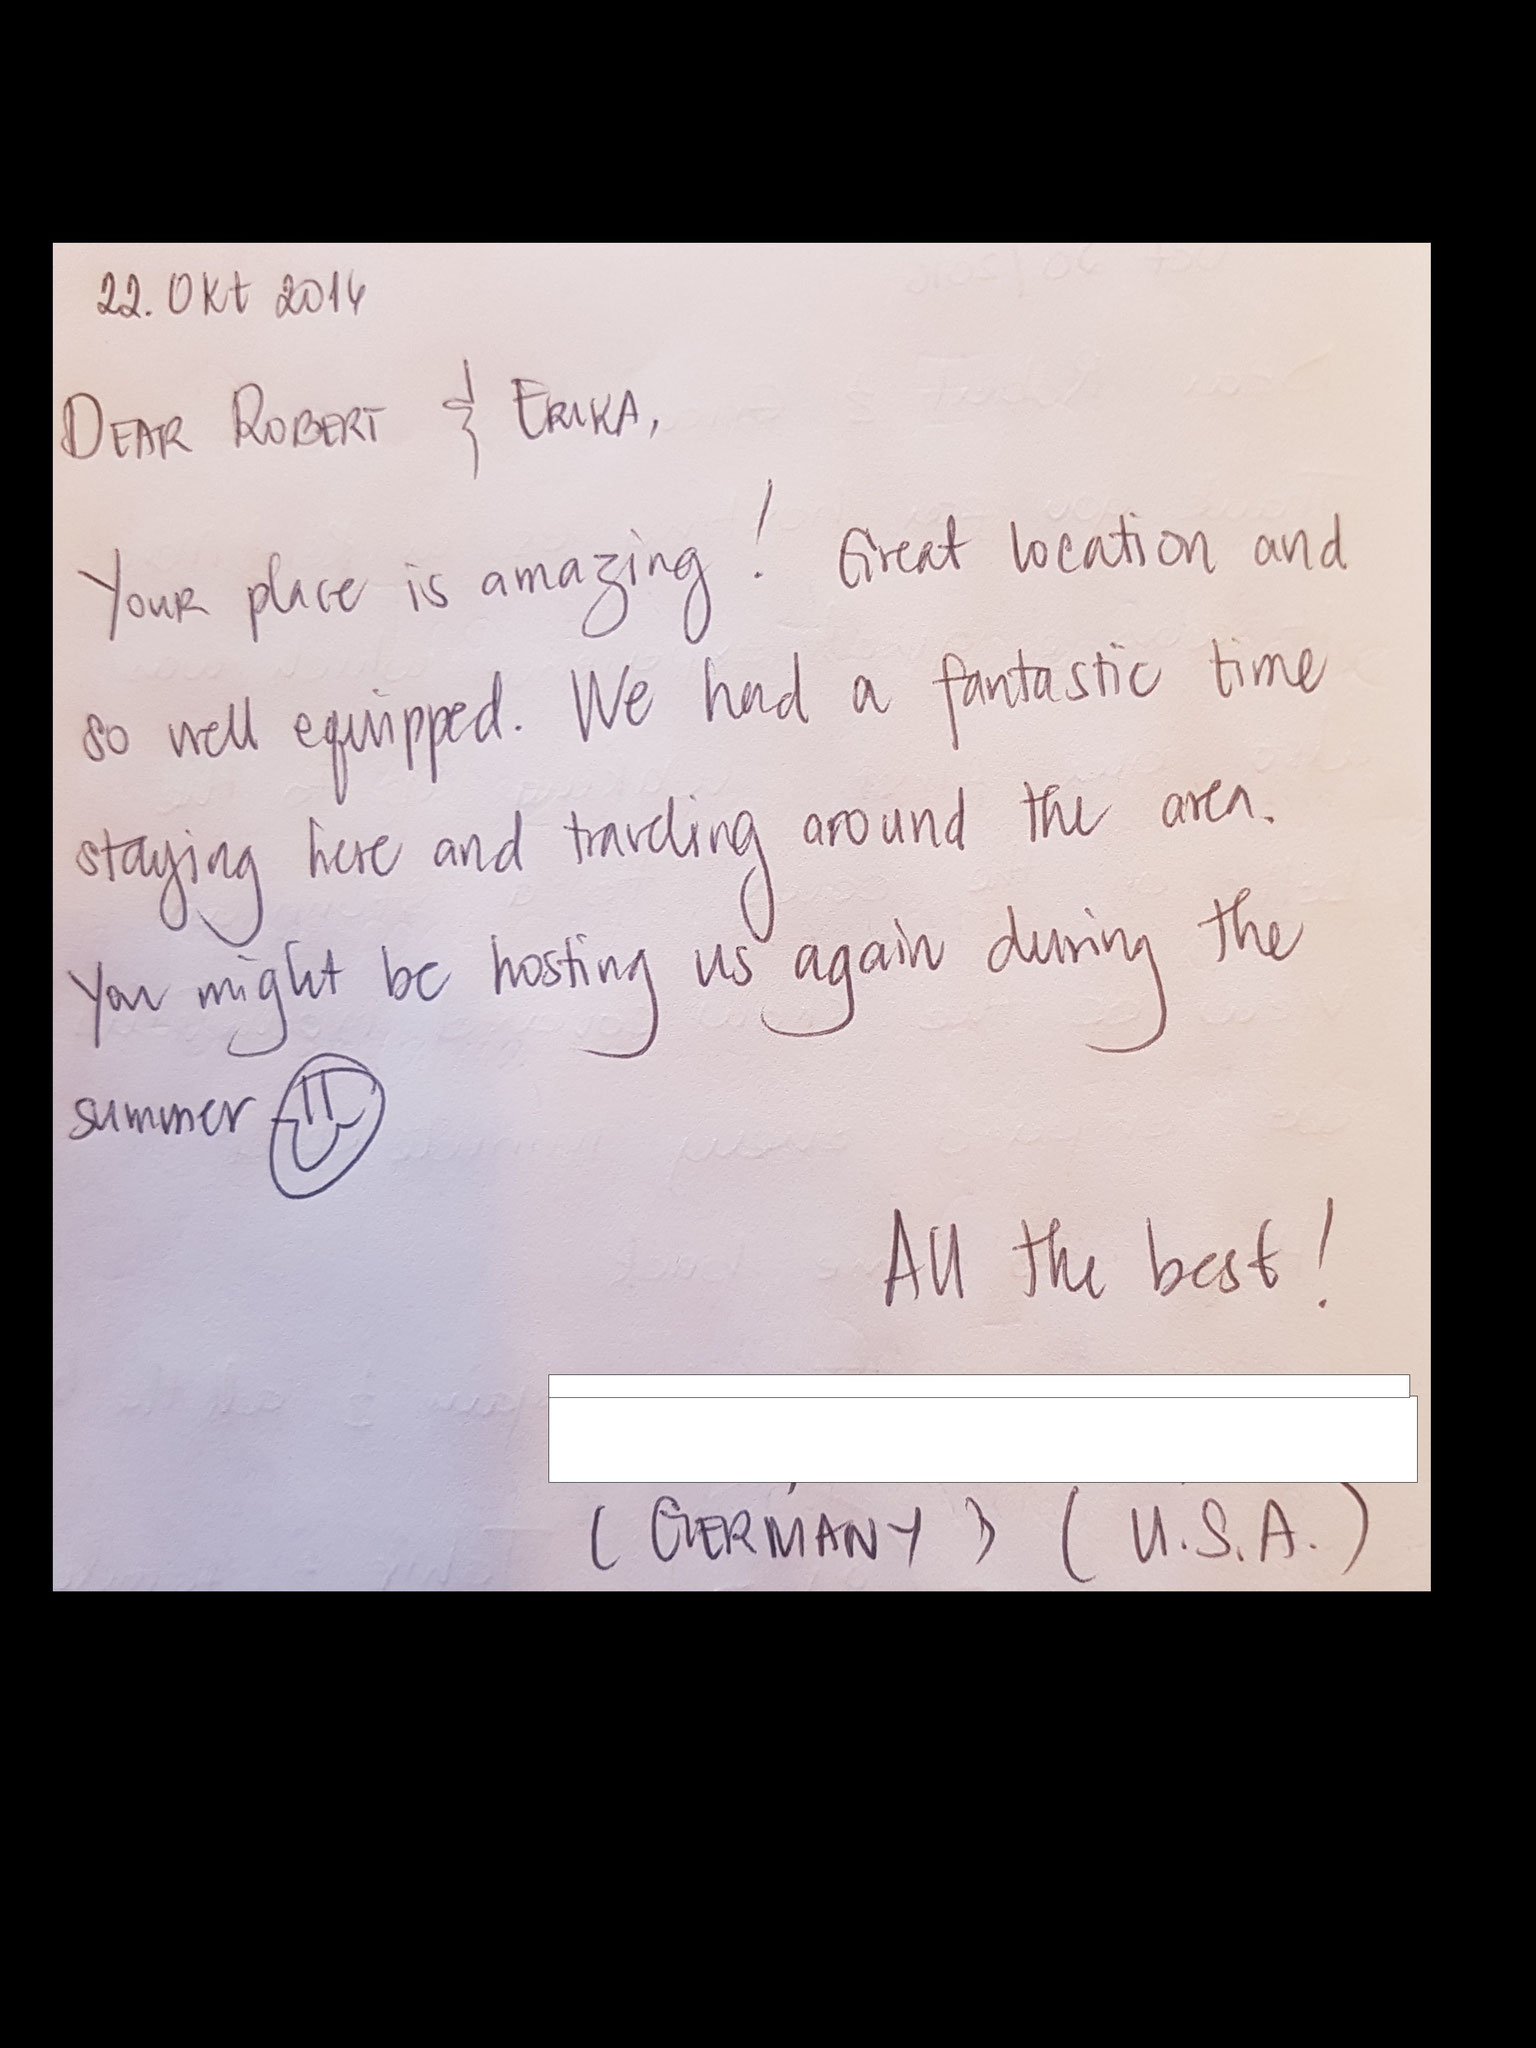 22. Okt 2016
DEAR ROBERT & ERIKA,
Your place is amazing! Great location and
so well equipped. We had a fantastic time
staying here and traveling around the area.
You might be hosting us again during the
summer
All the best!
(GERMANY) (U.S.A.)